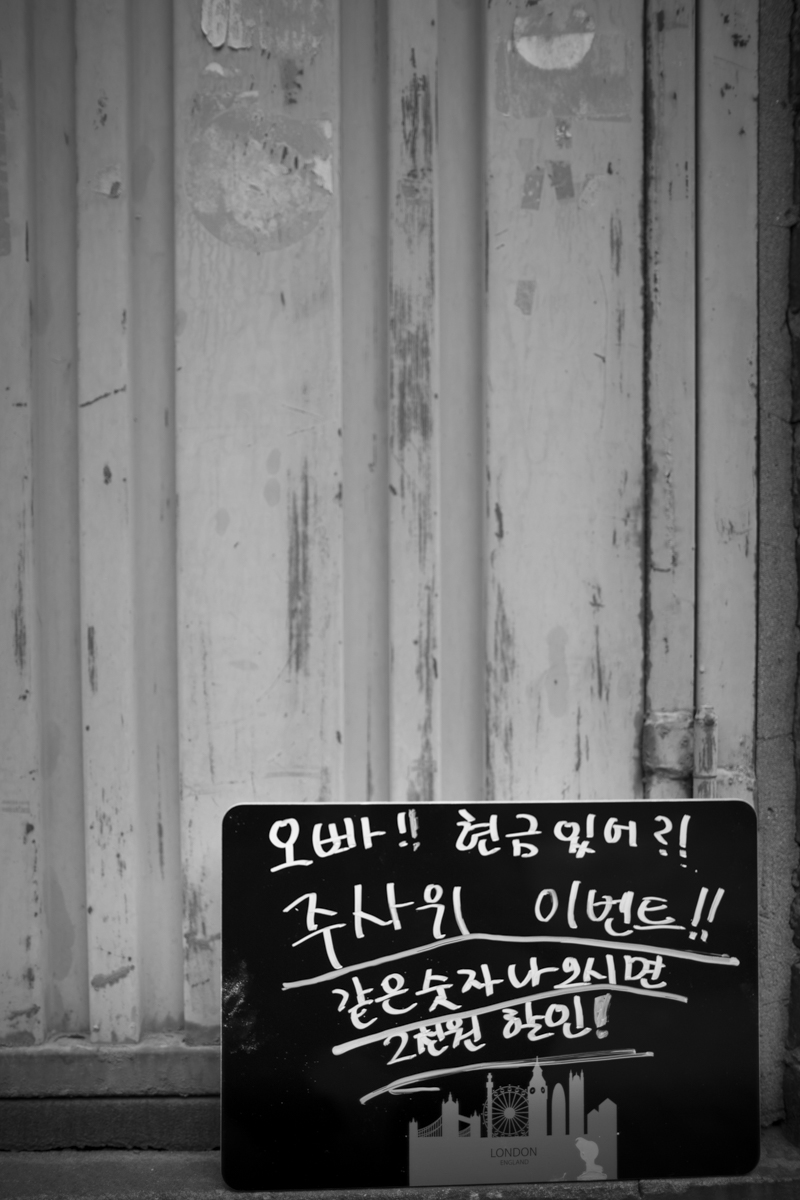 오빠!! 현금있어?!
주사위 이벤트!!
같은숫자나오시면
2천원 할인!
LONDON
ENGLAND